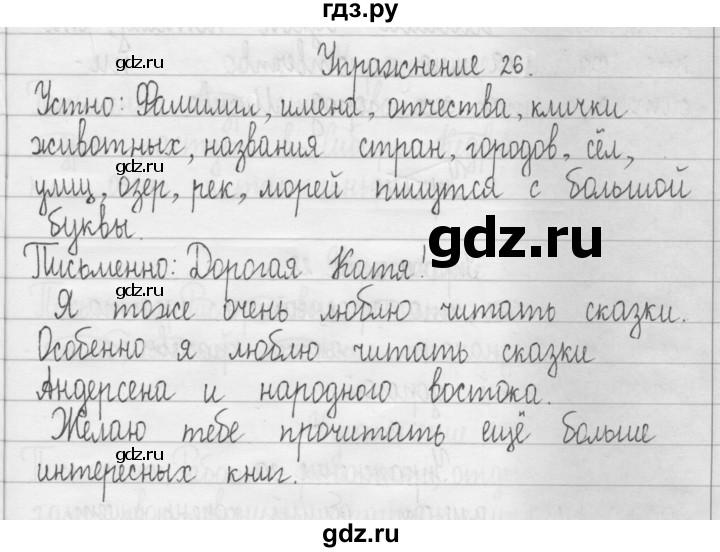 гдз.ру
Упражнение 26.
gdz.ru
Устно: Фамилии, имена, отчества, клички
животных, названия стран, городов, сёл,
gdz.ru
улиц, озер, рек, морей пишутся с большой
буквы.
gdz.ru
Письменно: Дорогая Катя!
gdz.ru
Я тоже очень люблю читать сказки.
Особенно я люблю читать сказки
gdz.ru
Андерсена и народного востока.
Желаю тебе прочитать ещё больше
gdz.ru
интересных книг.
gdz.ru